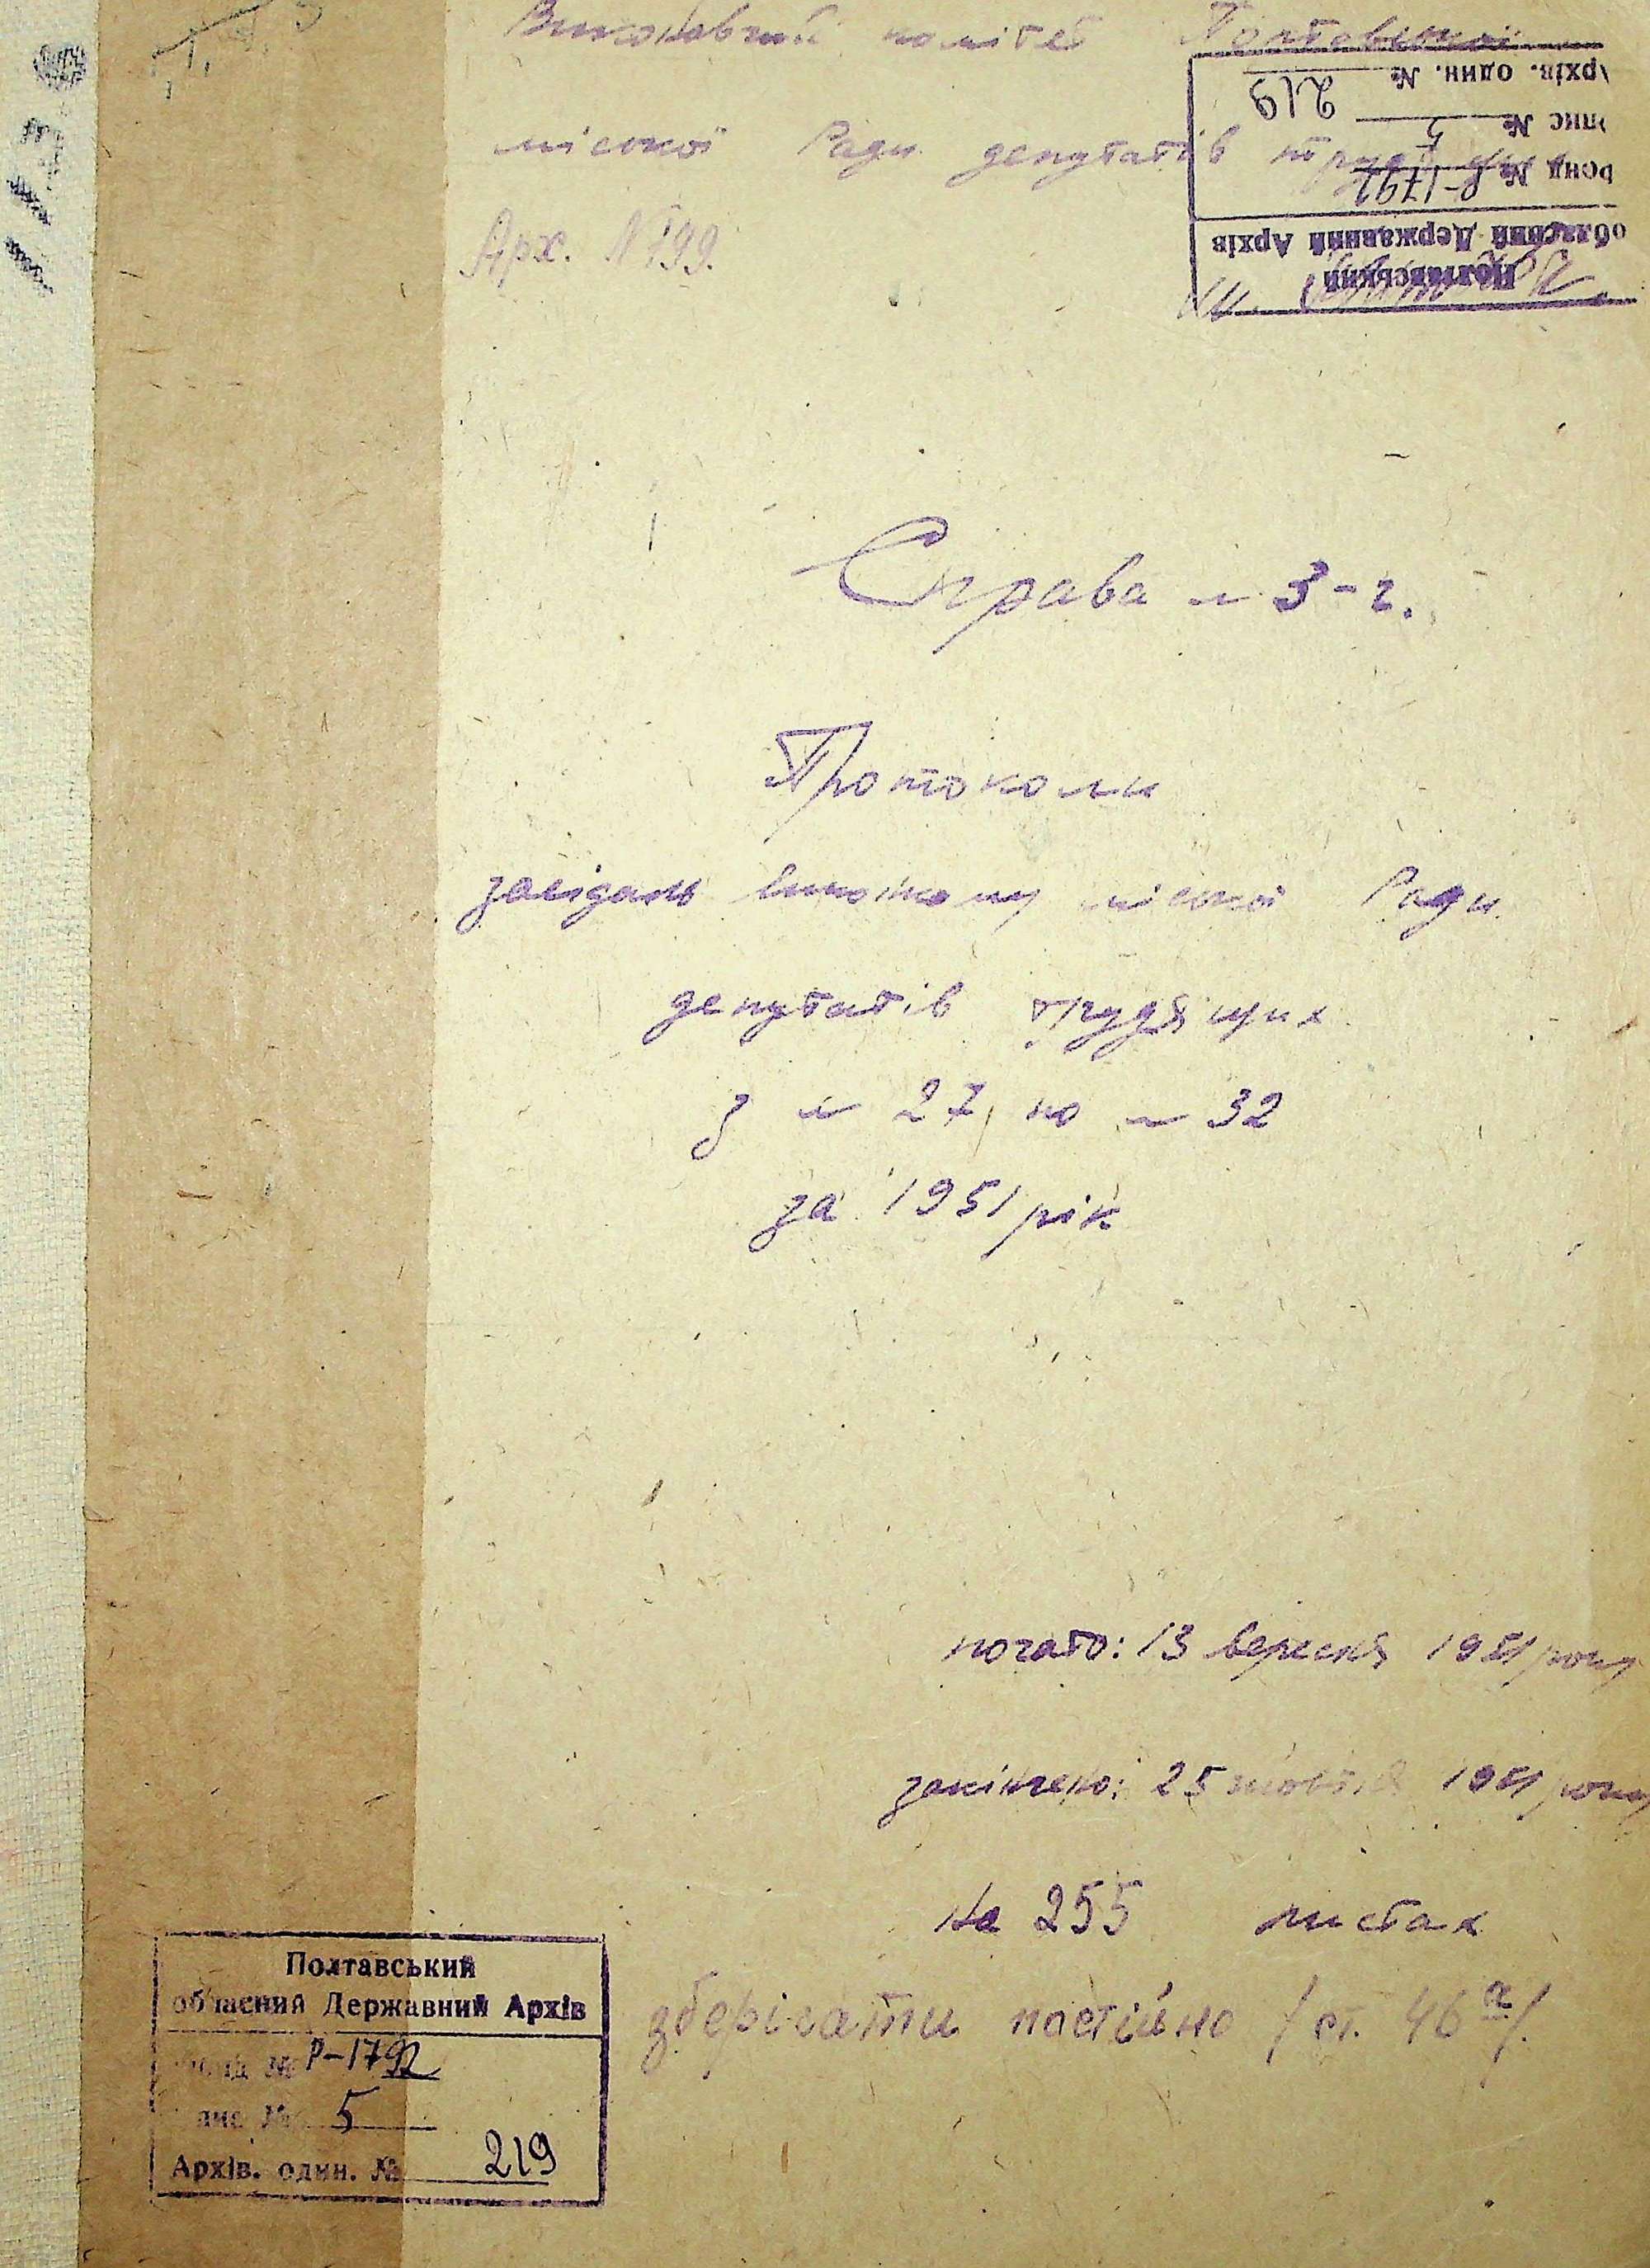 Виконавчий комітет Полтавської
міської Ради депутатів трудящих
Арх. №199.
Архів. один. № 219
опис № 5
Фонд № Р-1792
обласний Державний Архів
Полтавський
Справа № 3-г.
Протоколи
засідань виконкому міської Ради
депутатів трудящих
з № 27 по № 32
за 1951 рік
почато: 13 вересня 1951 року
закінчено: 25 жовтня 1951 року
на 255 листах
зберігати постійно /ст. 46а/.
Полтавський
обласний Державний Архів
Фонд № Р-1792
опис № 5
Архів. один. № 219